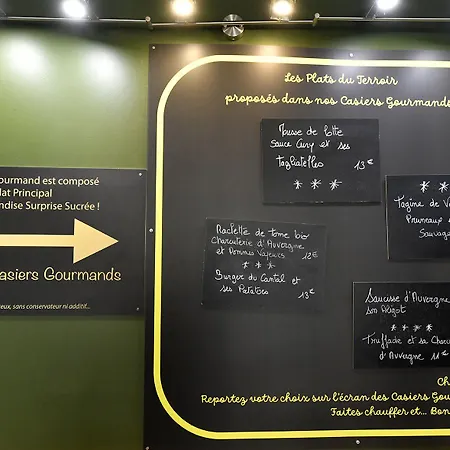 ourmand est composé
lat Principal
ndise Surprise Sucrée !
Casiers Gourmands
eux, sans conservateur ni additif...
Les Plats du Terroir
proposés dans nos Casiers Gourmands
Mousse de lotte
Sauce Cury et ses
Tagliatelles
13€
Tagine de V
Pruneaux
Sauvage
Raclette de tome bio
Charcuterie d'Auvergne
et Pommes Vapeurs 12€
Burger du Cantal et
ses Potatoes 13€
Saucisse d'Auvergne
son Aligot
Truffade et sa Charcu
d'Auvergne 11€
Ch
Reportez votre choix sur l'écran des Casiers Gou
Faites chauffer et... Bon